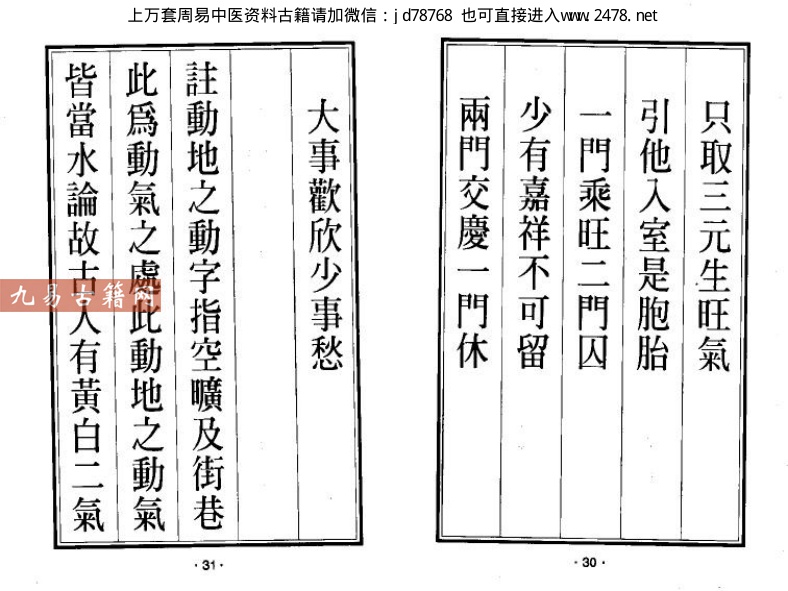 上万套周易中医资料古籍请加微信：jd78768 也可直接进入www.2478.net
只取三元生旺氣
引他入室是胞胎
一門乘旺二門囚
少有嘉祥不可留
兩門交慶一門休
·30·
大事歡欣少事愁
註動地之動字指空曠及街巷
此爲動氣之處此動地之動氣
皆當水論故古人有黃白二氣
·31·
九易古籍网